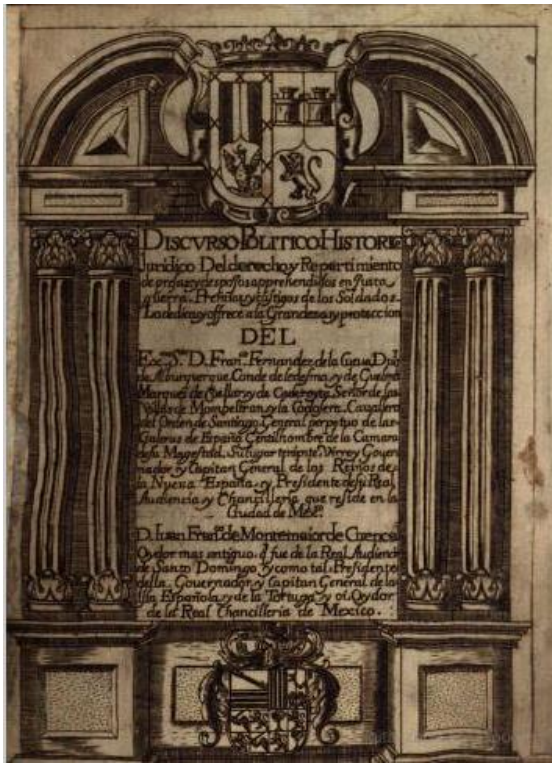 DISCVRSO POLITICO HISTORI
Juridico Del derecho y Repartimiento
de presas y despojos apprehendidos en justa
guerra. Premios y castigos de los Soldados.
Lo dedica y offrece a la Grandeza y proteccion
DEL
Exc.mo S.or D. Fran.co Fernandez de la Cueva, Duq
de Alburquerque, Conde de ledesma, y de Guelma
Marques de Cuellar y de Cadereyta, Señor de las
Villas de Mombeltran y la Codosera. Cavallero
del Orden de Santiago General perpetuo de las
Galeras de España Gentilhombre de la Camara
de su Magestad, Su lugar teniente, Virrey Gover
nador y Capitan General de los Reinos de
la Nueva España, y Presidente de su Real
Audiencia y Chancilleria que reside en la
Ciudad de Mex.co
D. Iuan Fran.co de Montemaior de Cuenca
Oydor mas antiguo, q fue de la Real Audienci
de Santo Domingo y como tal Presidente
della, Governador y Capitan General de la
Isla Española y de la Tortuga y oi Oydor
de la Real Chancilleria de Mexico.